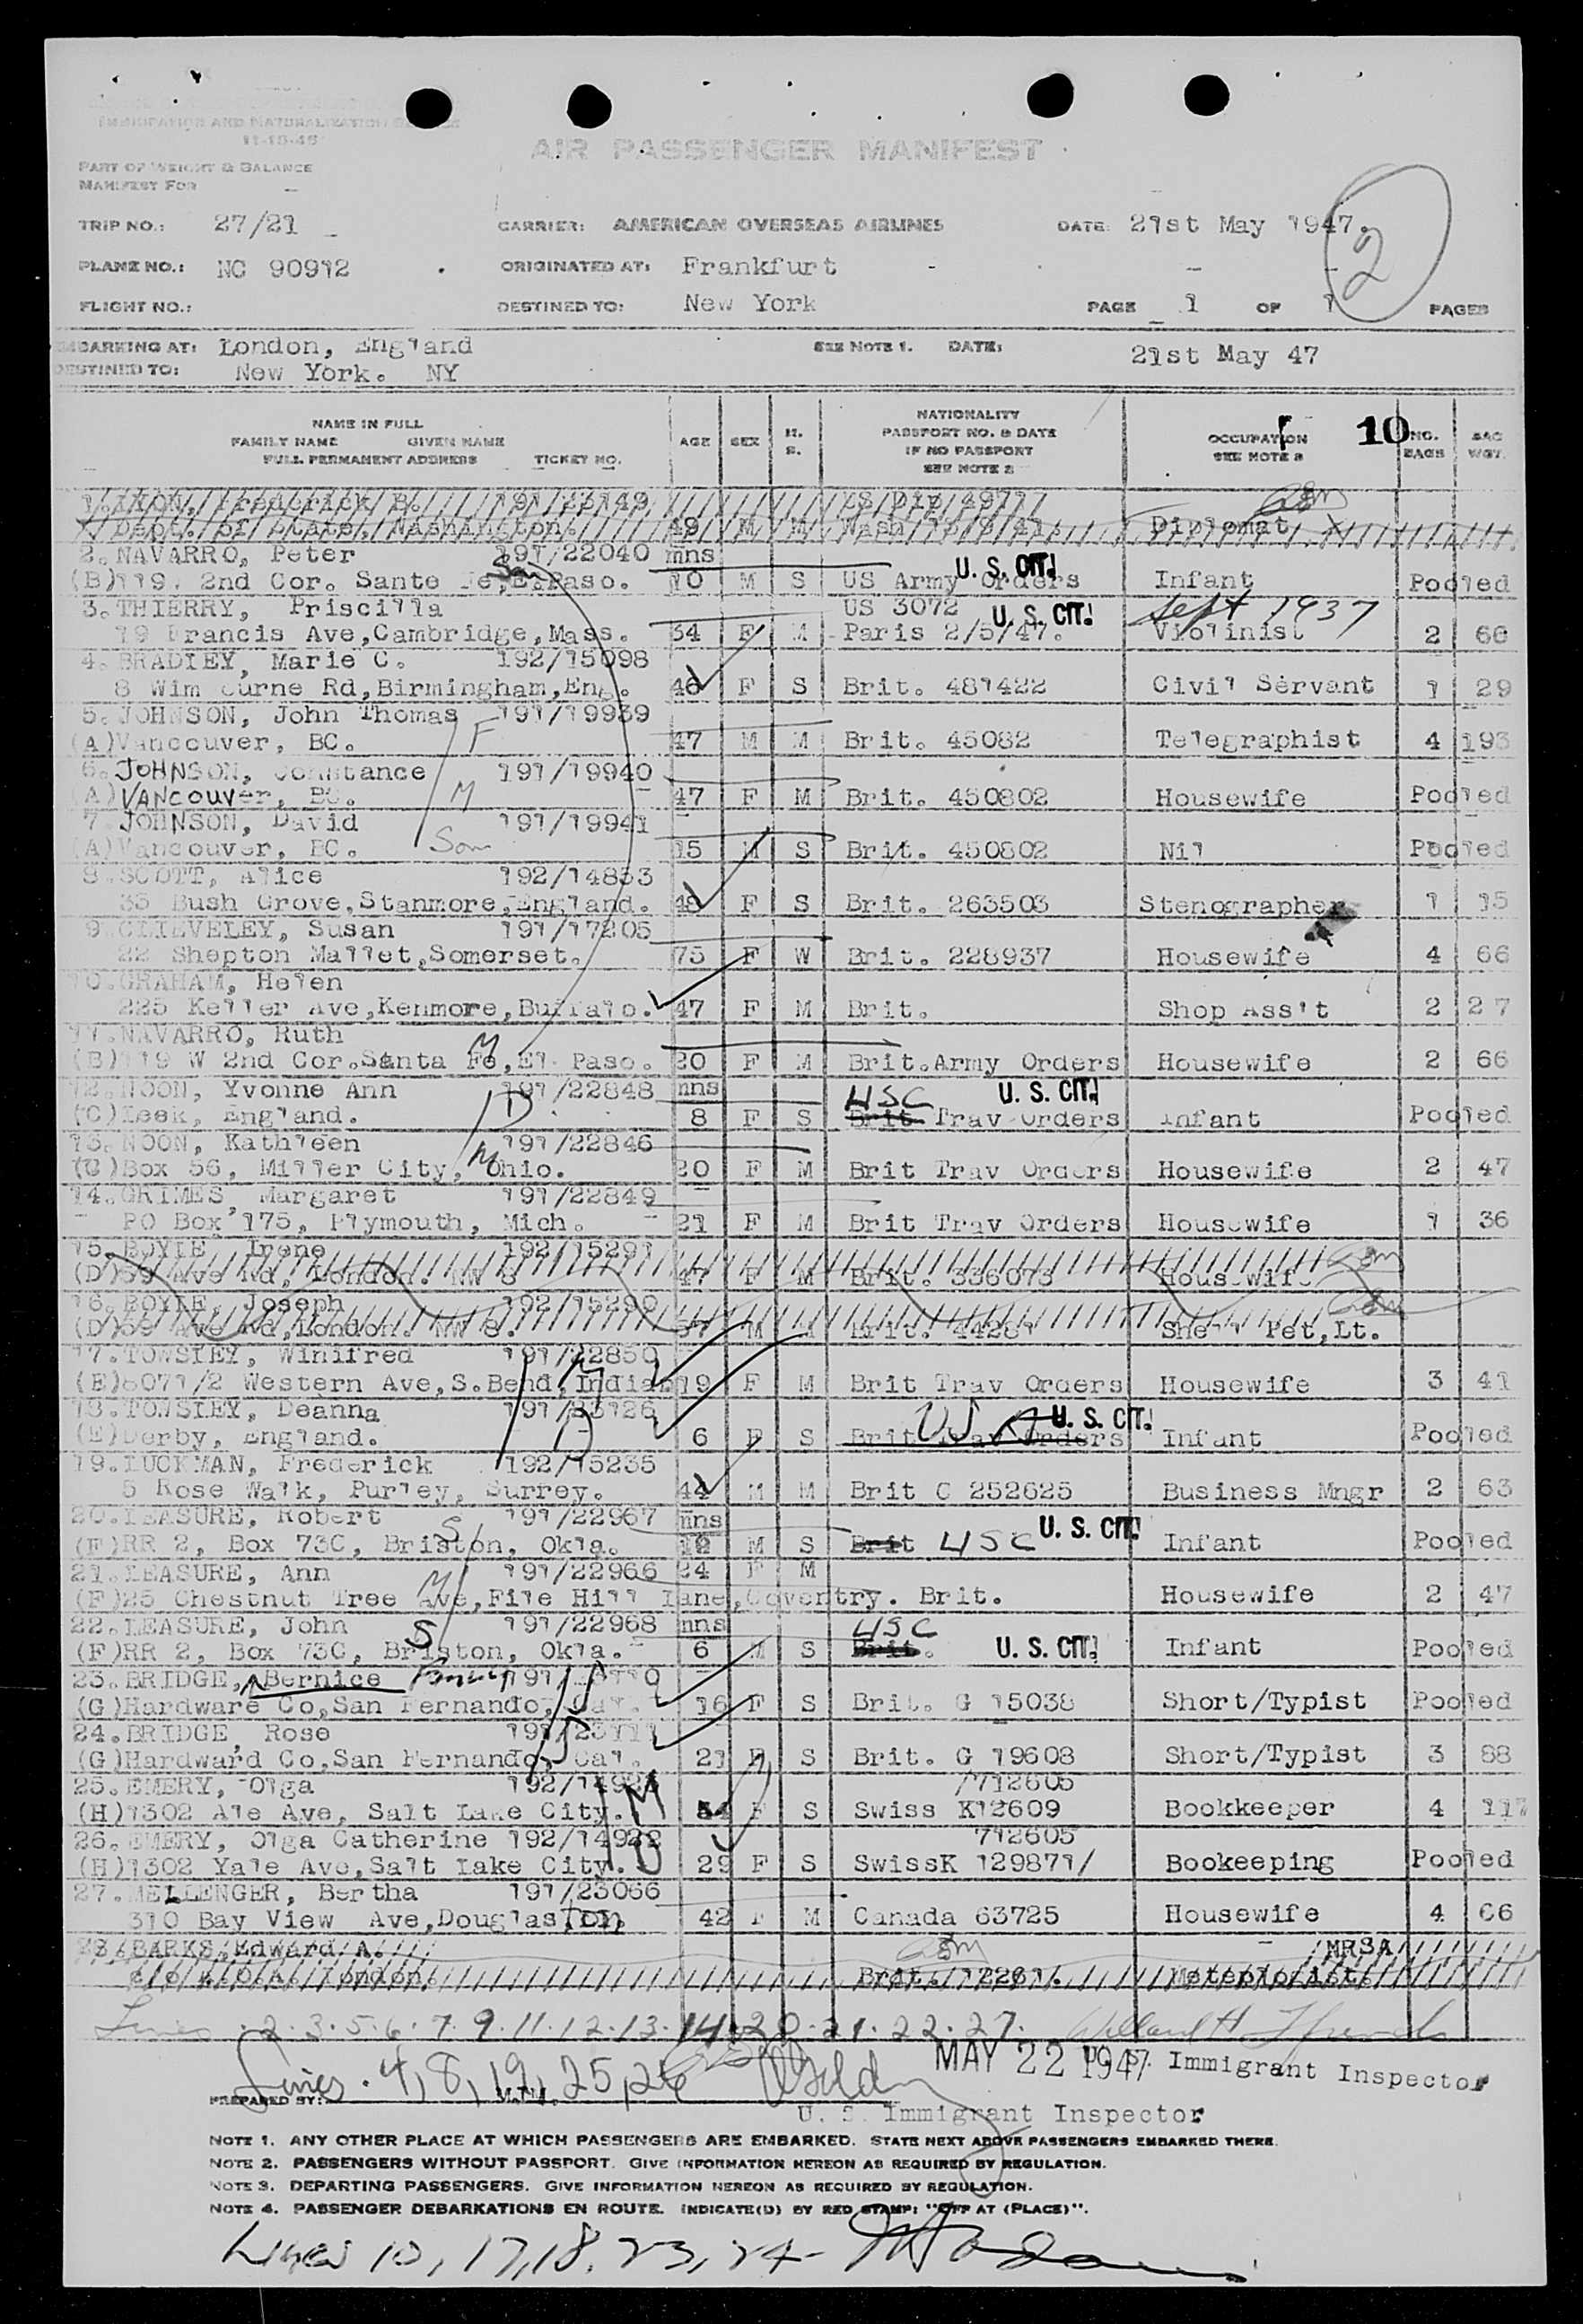 IMMIGRATION AND NATURALIZATION SERVICE
11-15-46
AIR PASSENGER MANIFEST
PART OF WEIGHT & BALANCE
MANIFEST FOR
2
TRIP NO.: 27/21 CARRIER: AMERICAN OVERSEAS AIRLINES DATE: 21st May 1947.
PLANE NO.: NC 90912 ORIGINATED AT: Frankfurt
FLIGHT NO.: DESTINED TO: New York PAGE 1 OF 1 PAGES
EMBARKING AT: London, England SEE NOTE 1. DATE: 21st May 47
DESTINED TO: New York. NY
NAME IN FULL
FAMILY NAME GIVEN NAME
FULL PERMANENT ADDRESS TICKET NO.
AGE SEX M. S.
NATIONALITY
PASSPORT NO. & DATE
IF NO PASSPORT
SEE NOTE 2
OCCUPATION
SEE NOTE 3
10
NO. BAGS BAG WGT.
Frederick B. 191/22149
Dept. of State, Washington. 49 M M Wash Diplomat
2. NAVARRO, Peter 191/22040 mns
Son
(B)119. 2nd Cor. Sante Fe, El Paso. 10 M S US Army Orders U. S. CIT. Infant Pooled
3. THIERRY, Priscilla US 3072 U. S. CIT. Sept 1937
19 Francis Ave, Cambridge, Mass. 34 F M Paris 2/5/47. Violinist 2 66
4. BRADLEY, Marie C. 192/15098
8 Wim ourne Rd, Birmingham, Eng. 46 F S Brit. 481422 Civil Servant 1 29
5. JOHNSON, John Thomas 191/19939
F
(A)Vancouver, BC. 47 M M Brit. 45082 Telegraphist 4 193
6. JOHNSON, Constance 191/19940
M
(A)VANCOUVer, BC. 47 F M Brit. 450802 Housewife Pooled
7. JOHNSON, David 191/19941
(A)Vancouver, BC. Son 15 M S Brit. 450802 Nil Pooled
8. SCOTT, Alice 192/14853
35 Bush Grove, Stanmore, England. 48 F S Brit. 263503 Stenographer 1 15
9. CLIEVELEY, Susan 191/17205
22 Shepton Mallet, Somerset. 75 F W Brit. 228937 Housewife 4 66
10. GRAHAM, Helen
225 Keller Ave, Kenmore, Buffalo. 47 F M Brit. Shop Ass't 2 27
11. NAVARRO, Ruth
M
(B)119 W 2nd Cor. Santa Fe, El Paso. 20 F M Brit. Army Orders Housewife 2 66
12. NOON, Yvonne Ann 191/22848 mns USC U. S. CIT.
D
(C)Leek, England. 8 F S Brit Trav Orders Infant Pooled
13. NOON, Kathleen 191/22846
M
(C)Box 56, Miller City, Ohio. 20 F M Brit Trav Orders Housewife 2 47
14. GRIMES, Margaret 191/22849
PO Box 175, Plymouth, Mich. 21 F M Brit Trav Orders Housewife 1 36
15. BOYLE, Irene 192/15291
(D)59 Ave Rd, London. NW 8 47 F M Brit. 336073 Housewife
16. BOYLE, Joseph 192/15290
(D)59 Ave Rd, London. NW 8. 57 M M Brit. 44281 Shell Pet, Lt.
17. TOWSLEY, Winifred 191/22850
M
(E)6071/2 Western Ave, S. Bend, Indian 19 F M Brit Trav Orders Housewife 3 41
18. TOWSLEY, Deanna 191/23126 U. S. CIT.
D
(E)Derby, England. 6 F S Brit Trav Orders Infant Pooled
19. LUCKMAN, Frederick 192/15235
5 Rose Walk, Purley, Surrey. 44 M M Brit C 252625 Business Mngr 2 63
20. LEASURE, Robert 191/22967 mns
S
(F)RR 2, Box 73C, Briston, Okla. 18 M S Brit USC U. S. CIT. Infant Pooled
21. LEASURE, Ann 191/22966 24 F M
M
(F)25 Chestnut Tree Ave, File Hill Lane, Coventry. Brit. Housewife 2 47
22. LEASURE, John 191/22968 mns USC
S
(F)RR 2, Box 73C, Briston, Okla. 6 M S Brit. U. S. CIT. Infant Pooled
23. BRIDGE, Bernice
(G)Hardware Co, San Fernando, Cal. 16 F S Brit. G 15038 Short/Typist Pooled
24. BRIDGE, Rose 191/23111
(G)Hardward Co, San Fernando, Cal. 21 F S Brit. G 19608 Short/Typist 3 88
25. EMERY, Olga /712605
M
(H)1302 Ale Ave, Salt Lake City. 54 F S Swiss K12609 Bookkeeper 4 117
26. EMERY, Olga Catherine 192/14922 712605
D
(H)1302 Yale Ave, Salt Lake City. 29 F S SwissK 129871/ Bookeeping Pooled
27. MELLENGER, Bertha 191/23066
310 Bay View Ave, Douglas 42 F M Canada 63725 Housewife 4 66
28. BARKS, Edward A. MRSA
c/o A.O.A. London. Brit. 12261.
Lines . 2. 3. 5. 6. 7. 9. 11. 12. 13. 14. 20. 21. 22. 27.
MAY 22 1947 U. S. Immigrant Inspector
Lines. 4, 8, 19, 25, 26
PREPARED BY:
U. S. Immigrant Inspector
NOTE 1. ANY OTHER PLACE AT WHICH PASSENGERS ARE EMBARKED. STATE NEXT ABOVE PASSENGERS EMBARKED THERE.
NOTE 2. PASSENGERS WITHOUT PASSPORT. GIVE INFORMATION HEREON AS REQUIRED BY REGULATION.
NOTE 3. DEPARTING PASSENGERS. GIVE INFORMATION HEREON AS REQUIRED BY REGULATION.
NOTE 4. PASSENGER DEBARKATIONS EN ROUTE. INDICATE(D) BY RED STAMP: "OFF AT (PLACE)".
Lines 10, 17, 18, 23, 24